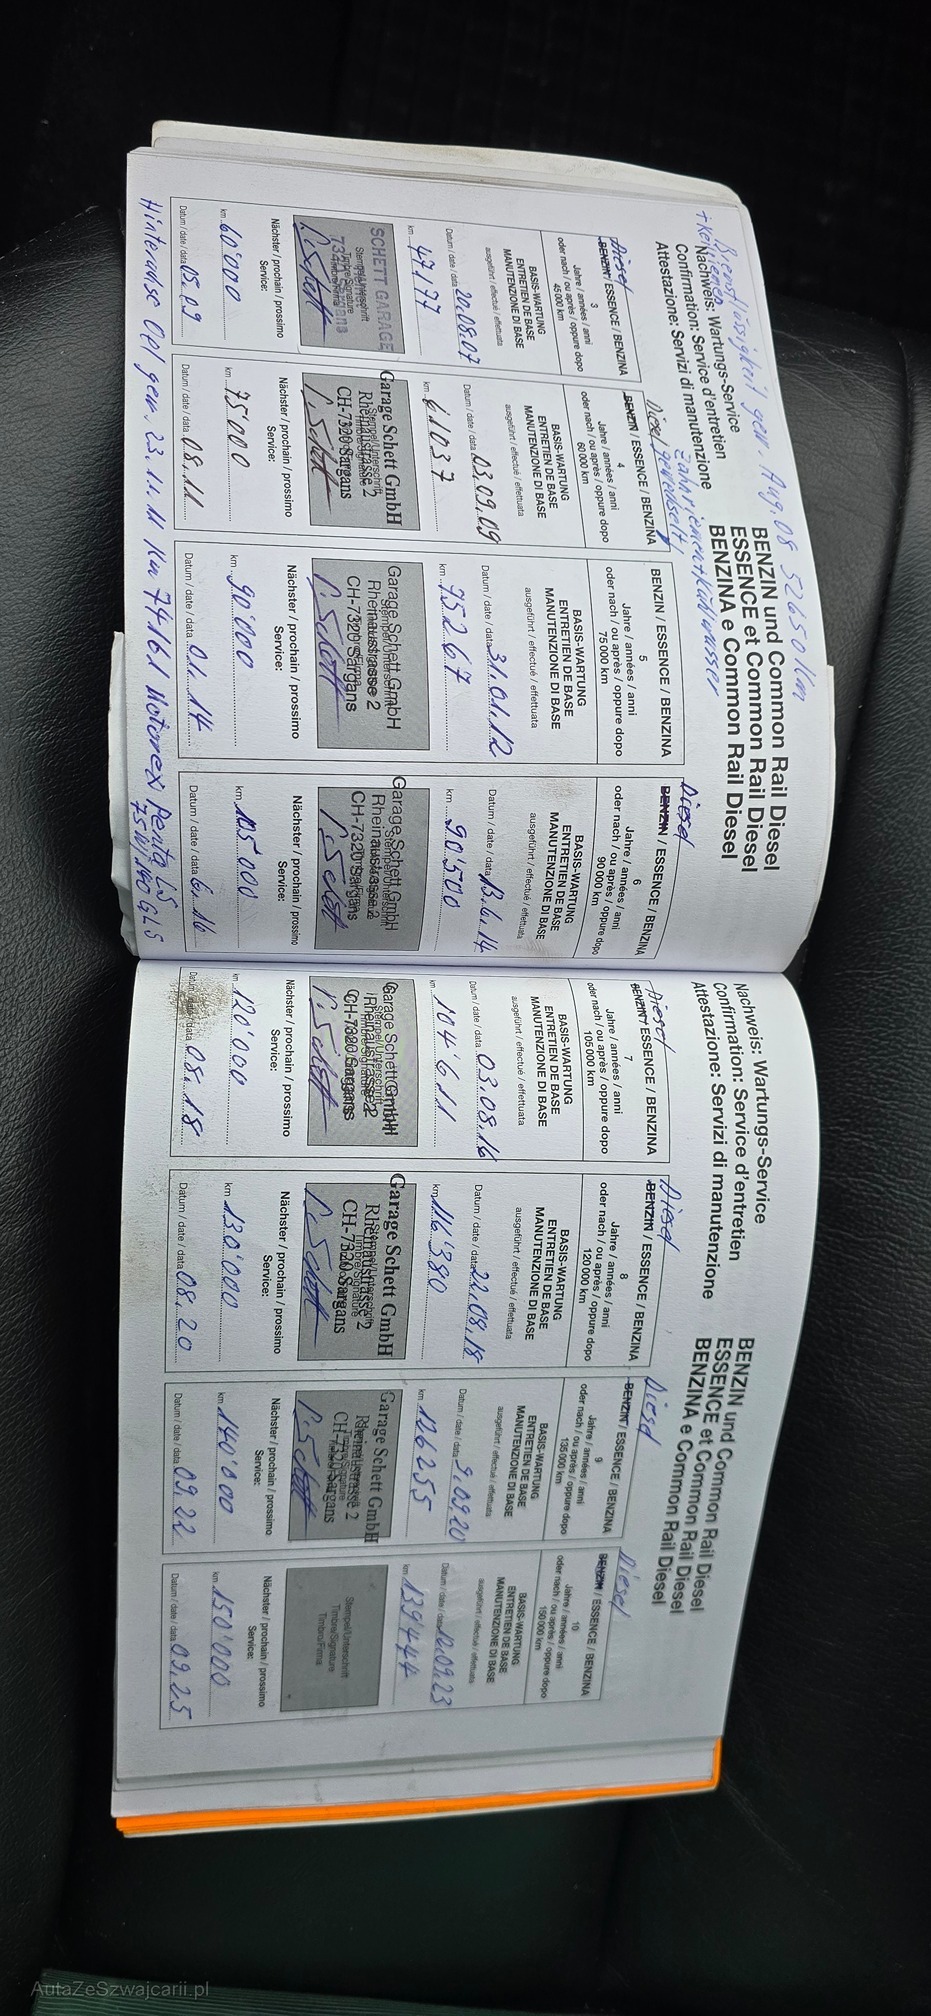 Bremsflüssigkeit gew. Aug. 08 52650 km
+ Keilriemen
Nachweis: Wartungs-Service
Confirmation: Service d'entretien
Attestazione: Servizi di manutenzione
Zahnriemen + Kühlwasser
gewechselt!
BENZIN und Common Rail Diesel
ESSENCE et Common Rail Diesel
BENZINA e Common Rail Diesel
Diesel
BENZIN / ESSENCE / BENZINA
3
Jahre / années / anni
oder nach / ou après / oppure dopo
45 000 km
BASIS-WARTUNG
ENTRETIEN DE BASE
MANUTENZIONE DI BASE
ausgeführt / effectué / effettuata
Datum / date / data 20.08.07
km 47177
SCHETT GARAGE
Stempel/Unterschrift
Timbre/Signature
Nächster / prochain / prossimo
Service:
km 60'000
Datum / date / data 05.09
Diesel
BENZIN / ESSENCE / BENZINA
4
Jahre / années / anni
oder nach / ou après / oppure dopo
60 000 km
BASIS-WARTUNG
ENTRETIEN DE BASE
MANUTENZIONE DI BASE
ausgeführt / effectué / effettuata
Datum / date / data 03.09.09
km 61037
Garage Schett GmbH
Rheinaustrasse 2
CH-7320 Sargans
Nächster / prochain / prossimo
Service:
km 75000
Datum / date / data 08.11
BENZIN / ESSENCE / BENZINA
5
Jahre / années / anni
oder nach / ou après / oppure dopo
75 000 km
BASIS-WARTUNG
ENTRETIEN DE BASE
MANUTENZIONE DI BASE
ausgeführt / effectué / effettuata
Datum / date / data 31.01.12
km 75267
Garage Schett GmbH
Rheinaustrasse 2
CH-7320 Sargans
Nächster / prochain / prossimo
Service:
km 90'000
Datum / date / data 01.14
Diesel
BENZIN / ESSENCE / BENZINA
6
Jahre / années / anni
oder nach / ou après / oppure dopo
90 000 km
BASIS-WARTUNG
ENTRETIEN DE BASE
MANUTENZIONE DI BASE
ausgeführt / effectué / effettuata
Datum / date / data 13.6.14
km 90'500
Garage Schett GmbH
Rheinaustrasse 2
CH-7320 Sargans
Nächster / prochain / prossimo
Service:
km 105'000
Datum / date / data 6.16
Hinterachse Oel gew. 23.11.11 Km 74161 Motorex Penta LS
75W/140 GL5
Nachweis: Wartungs-Service
Confirmation: Service d'entretien
Attestazione: Servizi di manutenzione
BENZIN und Common Rail Diesel
ESSENCE et Common Rail Diesel
BENZINA e Common Rail Diesel
Diesel
BENZIN / ESSENCE / BENZINA
7
Jahre / années / anni
oder nach / ou après / oppure dopo
105 000 km
BASIS-WARTUNG
ENTRETIEN DE BASE
MANUTENZIONE DI BASE
ausgeführt / effectué / effettuata
Datum / date / data 03.08.16
km 104'611
Garage Schett GmbH
Rheinaustrasse 2
CH-7320 Sargans
Nächster / prochain / prossimo
Service:
km 120'000
Datum / date / data 08.18
Diesel
BENZIN / ESSENCE / BENZINA
8
Jahre / années / anni
oder nach / ou après / oppure dopo
120 000 km
BASIS-WARTUNG
ENTRETIEN DE BASE
MANUTENZIONE DI BASE
ausgeführt / effectué / effettuata
Datum / date / data 22.08.18
km 116'380
Garage Schett GmbH
Rheinaustrasse 2
CH-7320 Sargans
Nächster / prochain / prossimo
Service:
km 130'000
Datum / date / data 08.20
Diesel
BENZIN / ESSENCE / BENZINA
9
Jahre / années / anni
oder nach / ou après / oppure dopo
135 000 km
BASIS-WARTUNG
ENTRETIEN DE BASE
MANUTENZIONE DI BASE
ausgeführt / effectué / effettuata
Datum / date / data 9.09.20
km 126255
Garage Schett GmbH
Rheinaustrasse 2
CH-7320 Sargans
Nächster / prochain / prossimo
Service:
km 140'000
Datum / date / data 09.22
Diesel
BENZIN / ESSENCE / BENZINA
10
Jahre / années / anni
oder nach / ou après / oppure dopo
150 000 km
BASIS-WARTUNG
ENTRETIEN DE BASE
MANUTENZIONE DI BASE
ausgeführt / effectué / effettuata
Datum / date / data
km 139444
Stempel/Unterschrift
Timbre/Signature
Timbro/Firma
Nächster / prochain / prossimo
Service:
km 150'000
Datum / date / data 09.25
AutaZeSzwajcarii.pl